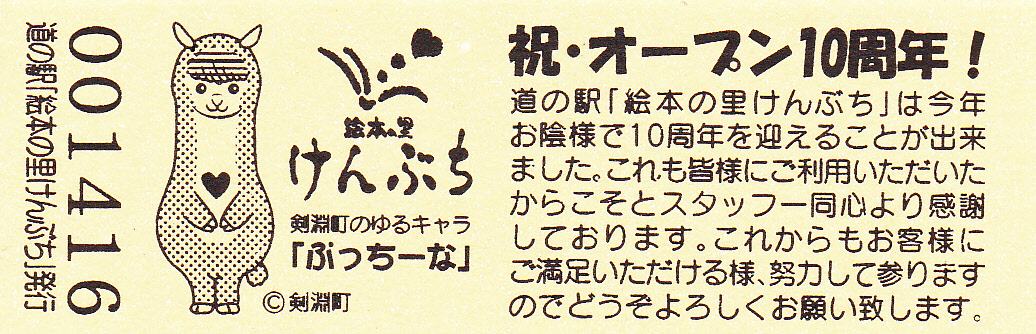 道の駅「絵本の里けんぶち」発行
001416
絵本の里
けんぶち
剣淵町のゆるキャラ
「ぷっちーな」
©剣淵町
祝・オープン10周年！
道の駅「絵本の里けんぶち」は今年
お陰様で10周年を迎えることが出来
ました。これも皆様にご利用いただいた
からこそとスタッフ一同心より感謝
しております。これからもお客様に
ご満足いただける様、努力して参ります
のでどうぞよろしくお願い致します。